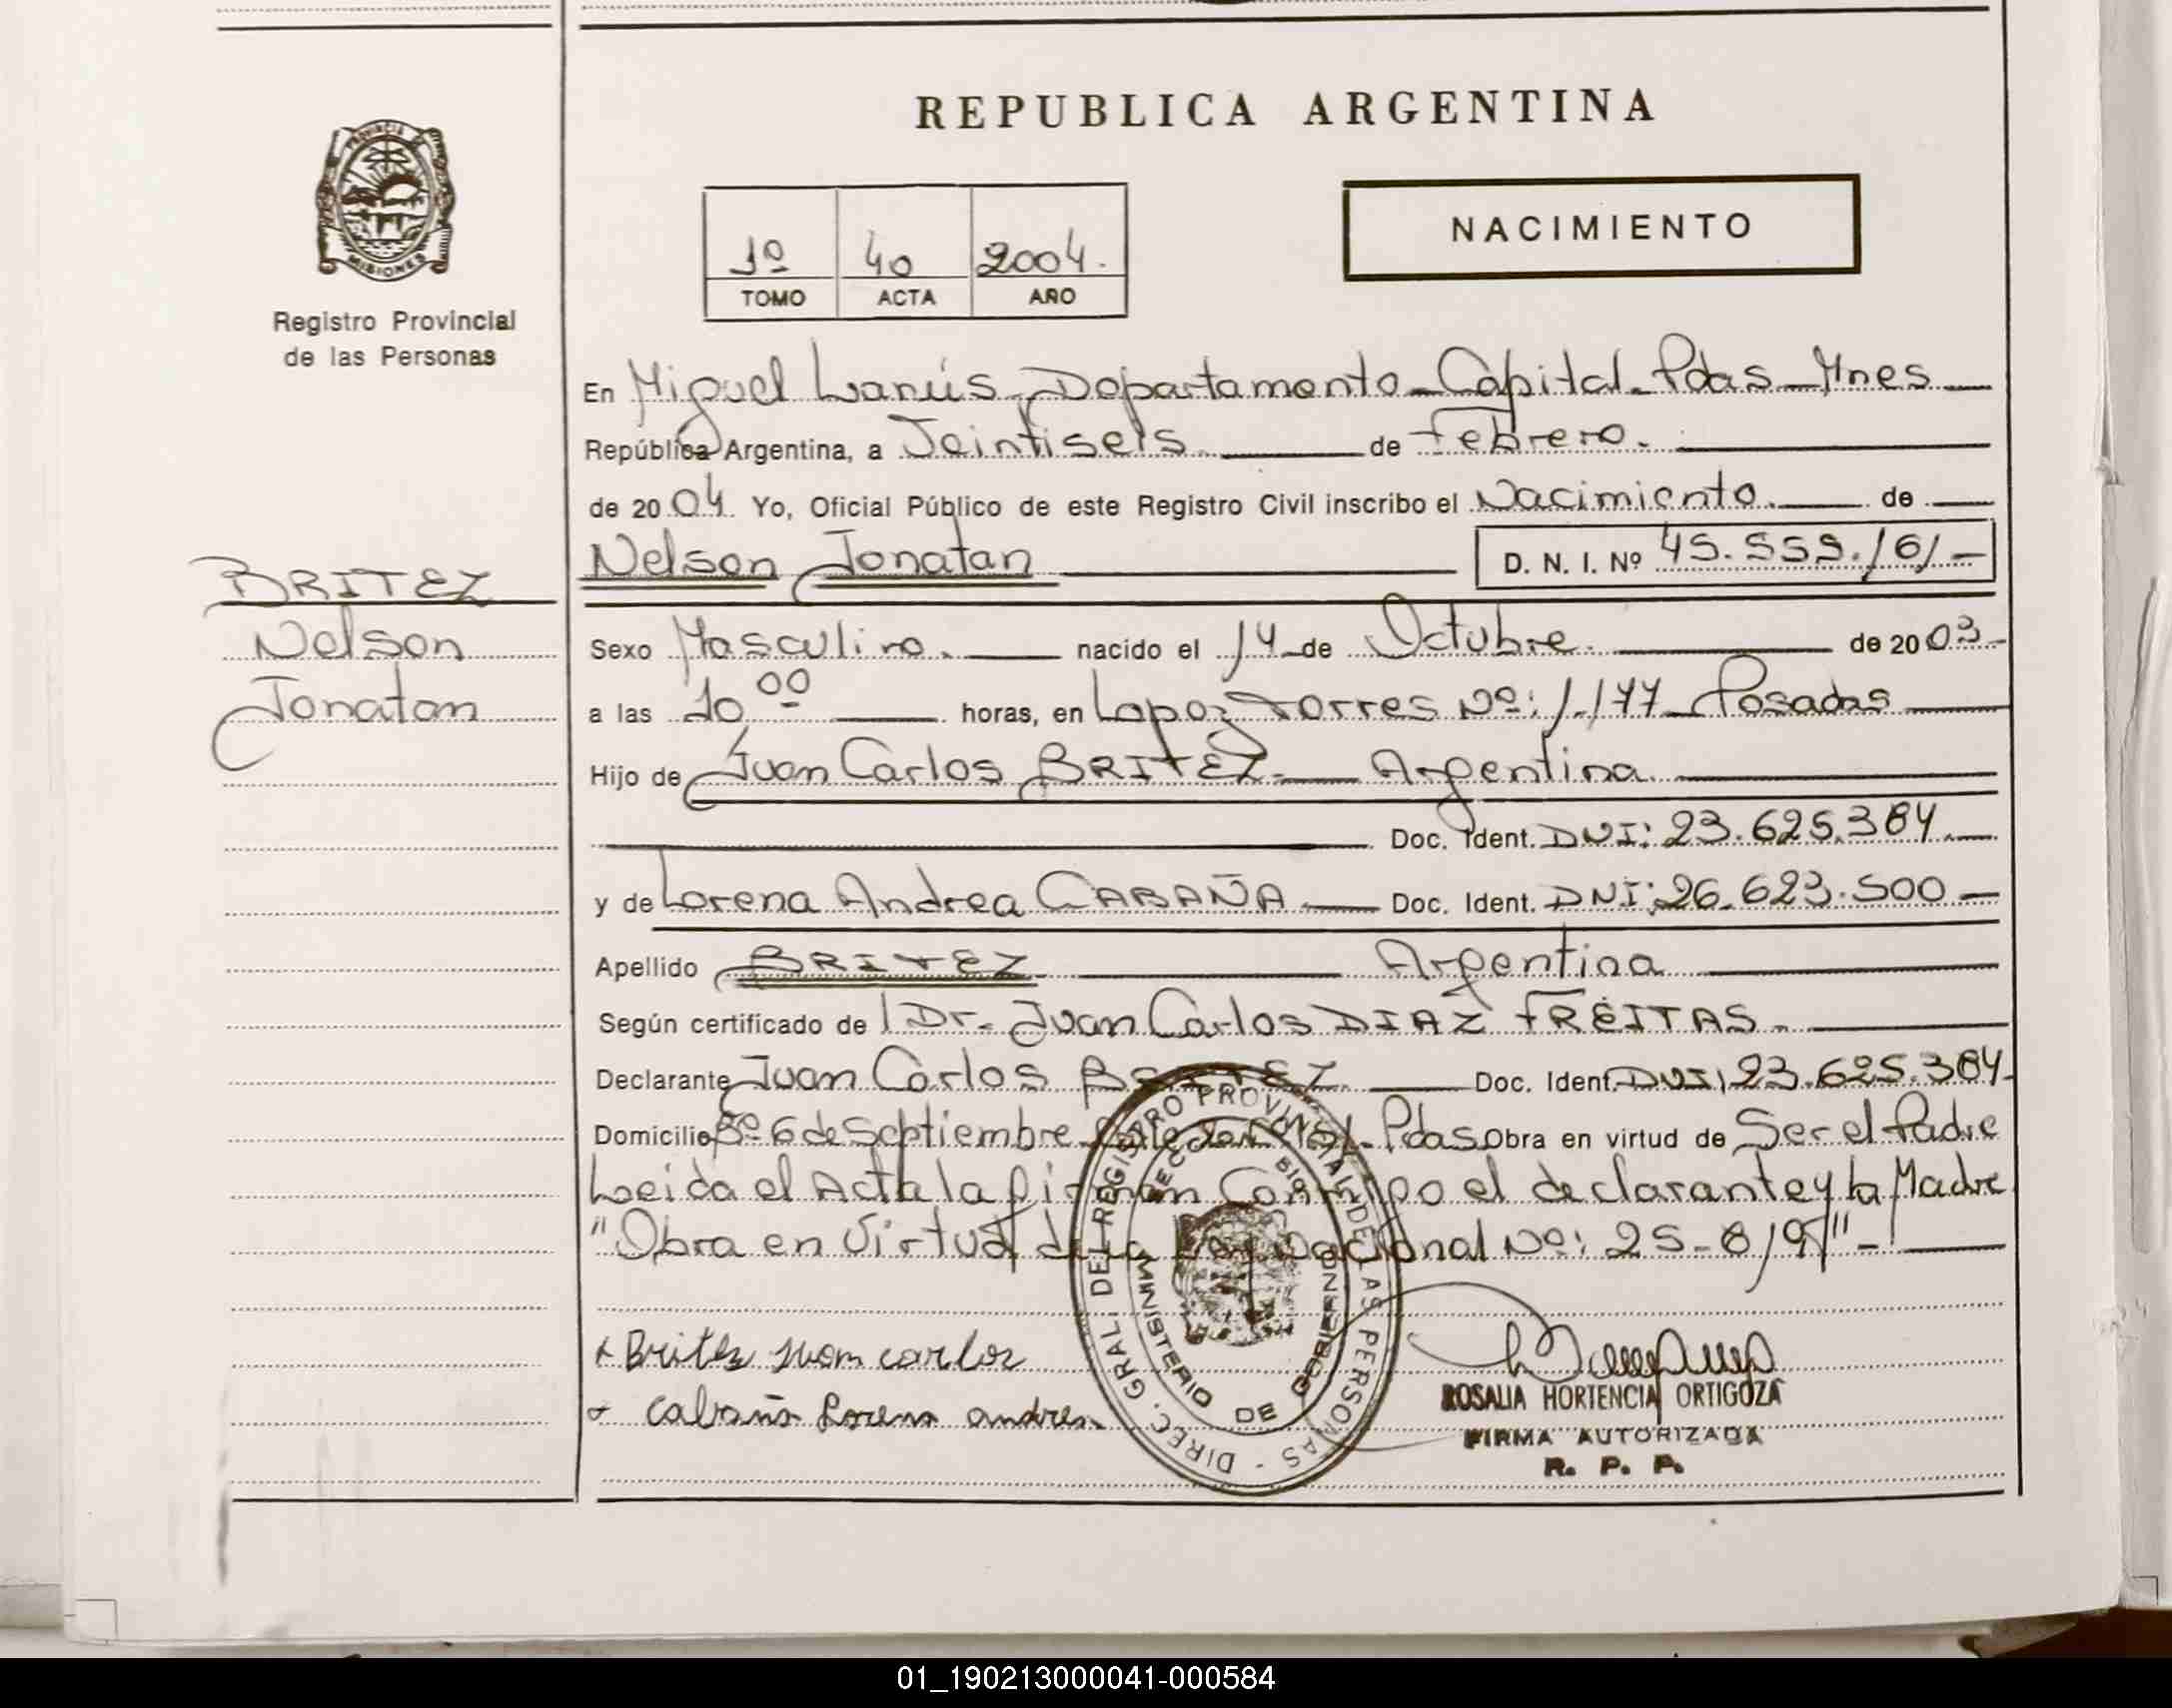 REPUBLICA ARGENTINA
PROVINCIA DE
MISIONES
Registro Provincial
de las Personas
1º 40 2004.
TOMO ACTA AÑO
NACIMIENTO
En Miguel Lanús - Departamento - Capital - Pdas - Mnes
República Argentina, a Veintiseis de Febrero.
de 2004 Yo, Oficial Público de este Registro Civil inscribo el Nacimiento. de
Nelson Jonatan D. N. I. Nº 45.559.161-
BRITEZ
Nelson
Jonatan
Sexo Masculino. nacido el 14 de Octubre. de 2003-
a las 10 00 horas, en Lopez Torres Nº: 1.177 - Posadas
Hijo de Juan Carlos BRITEZ - Argentina
Doc. Ident. DNI: 23.625.384
y de Lorena Andrea CABAÑA Doc. Ident. DNI: 26.623.500
Apellido BRITEZ Argentina
Según certificado de l Dr. Juan Carlos DIAZ FREITAS.
Declarante Juan Carlos BRITEZ Doc. Ident. DNI, 23.625.384
Domicilio Bº 6 de Septiembre Pdas Obra en virtud de Ser el Padre
Leida el Acta la firman Conmigo el declarante y la Madre
"Obra en Virtud de la Ley Nacional Nº: 25-819"-
Britez Juan carlos
Cabaña Lorena andrea
DIREC. GRAL. DEL REGISTRO PROVINCIAL DE LAS PERSONAS
MINISTERIO DE GOBIERNO
ROSALIA HORTENCIA ORTIGOZA
FIRMA AUTORIZADA
R. P. P.
01_190213000041-000584